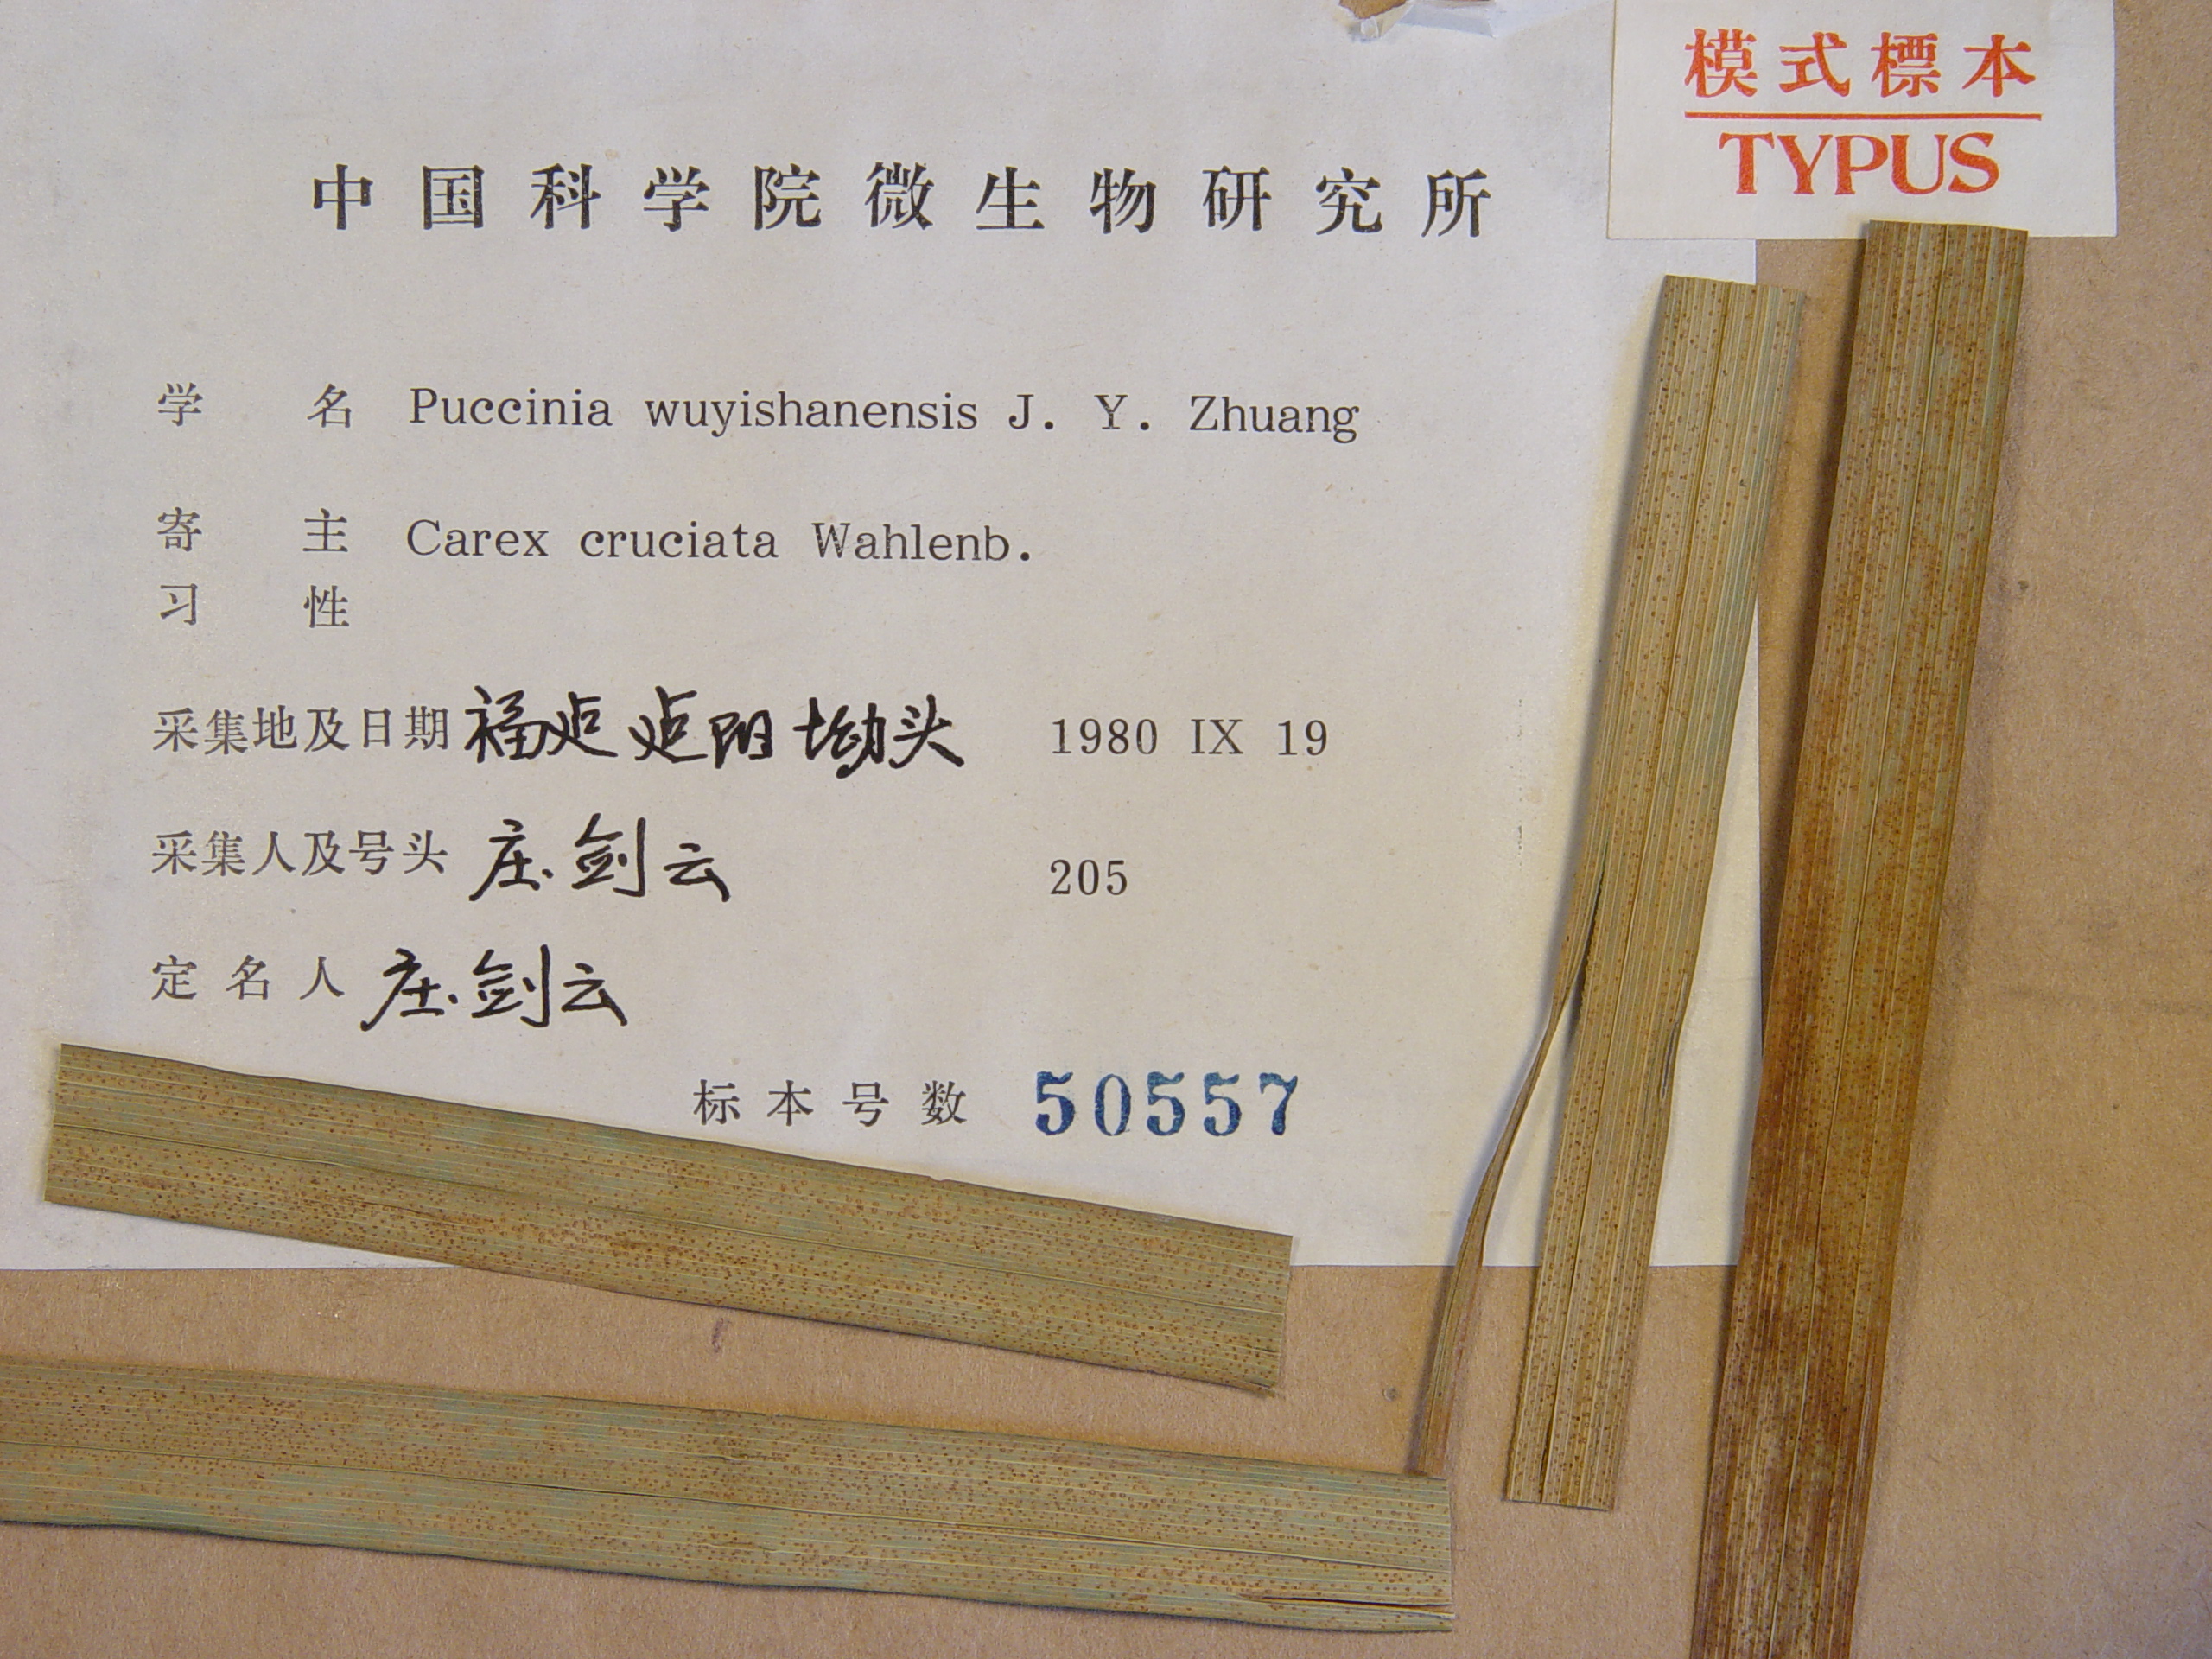 模式標本
TYPUS
中国科学院微生物研究所
学名 Puccinia wuyishanensis J. Y. Zhuang
寄主 Carex cruciata Wahlenb.
习性
采集地及日期 福建 建阳 坳头 1980 IX 19
采集人及号头 庄剑云 205
定名人 庄剑云
标本号数 50557